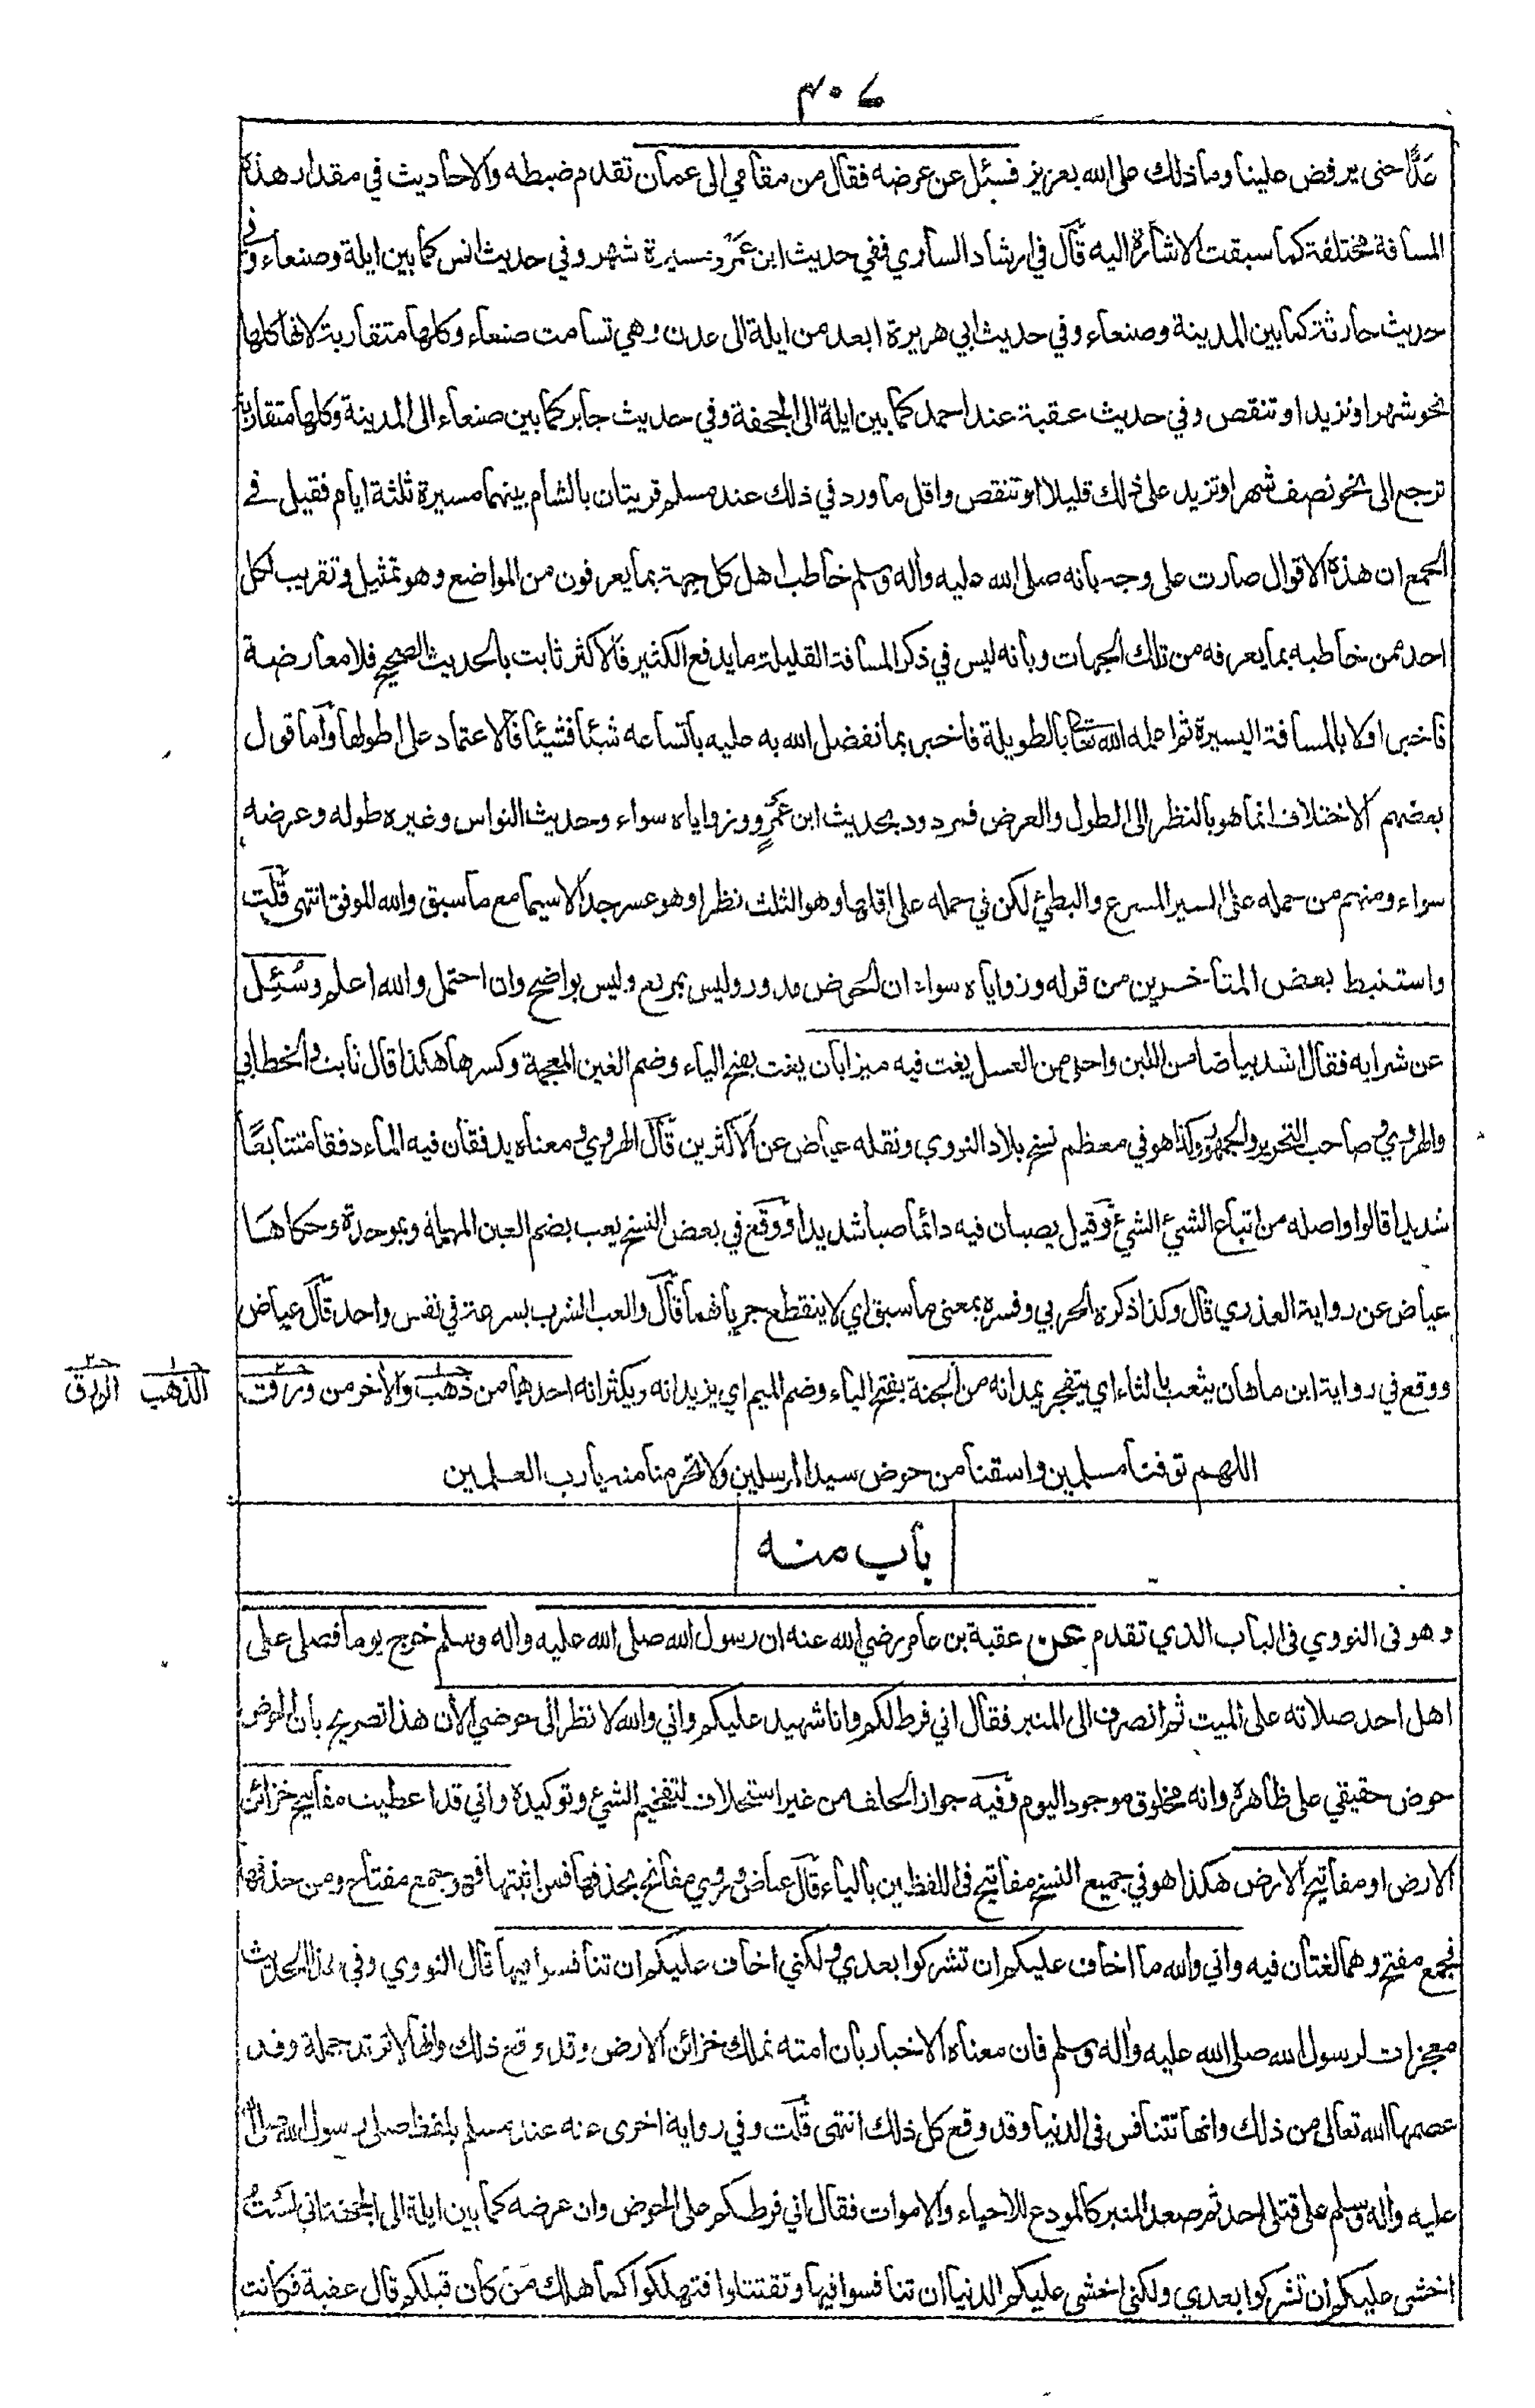 ٤٠٧
عدًّا حتى يرفض علينا وما ذلك على الله بعزيز فسئل عن عرضه فقال من مقامي الى عمان تقدم ضبطه والاحاديث في مقدار هذه
المسافة مختلفة كما سبقت الاشارة اليه قال في ارشاد الساري ففي حديث ابن عمرو مسيرة شهر وفي حديث انس كما بين ايلة وصنعاء وفي
حديث حارثة كما بين المدينة وصنعاء وفي حديث ابي هريرة ابعد من ايلة الى عدن وهي تسامت صنعاء وكلها متقاربة لانها كلها
نحو شهر او تزيد او تنقص وفي حديث عقبة عند احمد كما بين ايلة الى الجحفة وفي حديث جابر كما بين صنعاء الى المدينة وكلها متقاربة
ترجع الى نحو نصف شهر او تزيد على ذلك قليلا او تنقص واقل ما ورد في ذلك عند مسلم قريتان بالشام بينهما مسيرة ثلثة ايام فقيل في
الجمع ان هذه الاقوال صارت على وجه بانه صلى الله عليه واله وسلم خاطب اهل كل جهة بما يعرفون من المواضع وهو تمثيل وتقريب لكل
احد ممن خاطبه بما يعرفه من تلك الجهات وبانه ليس في ذكر المسافة القليلة ما يدفع الكثير فالاكثر ثابت بالحديث الصحيح فلا معارضة
فاخبر اولا بالمسافة اليسيرة ثم اعلمه الله تعا بالطويلة فاخبر بما تفضل الله به عليه باتساعه شيئا فشيئا فالاعتماد على اطولها واما قول
بعضهم الاختلاف انما هو بالنظر الى الطول والعرض فمردود بحديث ابن عمرو وزواياه سواء وحديث النواس وغيره طوله وعرضه
سواء ومنهم من حمله على السير المسرع والبطئ لكن في حمله على اقلها وهو الثلث نظر او هو عسر جدا لاسيما مع ما سبق والله الموفق انتهى قلت
واستنبط بعض المتاخرين من قوله وزواياه سواء ان الحوض مدور وليس بمربع وليس بواضح وان احتمل والله اعلم وسُئِل
عن شرابه فقال اشد بياضا من اللبن واحلى من العسل يغت فيه ميزابان يغت بفتح الياء وضم الغين المعجمة وكسرها هكذا قال ثابت والخطابي
والهروي وصاحب التحرير والجمهور وكذا هو في معظم نسخ بلاد النووي ونقله عياض عن الاكثرين قال الهروي ومعناه يدفقان فيه الماء دفقا متتابعًا
شديدا قالوا واصله من اتباع الشئ الشئ وقيل يصبان فيه دائما صبا شديدا ووقع في بعض النسخ يعب بضم العين المهملة وبموحدة وحكاها
عياض عن رواية العذري قال وكذا ذكره الحربي وفسره بمعنى ما سبق اي لا ينقطع جريانهما قال والعب الشرب بسرعة في نفس واحد قال عياض
ووقع في رواية ابن ماهان يثعب بالثاء اي يتفجر يمدانه من الجنة بفتح الياء وضم الميم اي يزيدانه ويكثرانه احدهما من ذهب والآخر من ورق
الذهب الورق
اللهم توفنا مسلمين واسقنا من حوض سيد المرسلين ولا تحرمنا منه يا رب العلمين
باب منه
وهو في النووي في الباب الذي تقدم عن عقبة بن عامر رضي الله عنه ان رسول الله صلى الله عليه واله وسلم خرج يوما فصلى على
اهل احد صلاته على الميت ثم انصرف الى المنبر فقال اني فرط لكم وانا شهيد عليكم واني والله لانظر الى حوضي الآن هذا تصريح بان الحوض
حوض حقيقي على ظاهره وانه مخلوق موجود اليوم وفيه جواز الحلف من غير استحلاف لتفخيم الشئ وتوكيده واني قد اعطيت مفاتيح خزائن
الارض او مفاتيح الارض هكذا هو في جميع النسخ مفاتيح في اللفظين بالياء قال عياض وروي مفاتح بحذفها فمن اثبتها فهو جمع مفتاح ومن حذفها
فجمع مفتح وهما لغتان فيه واني والله ما اخاف عليكم ان تشركوا بعدي ولكني اخاف عليكم ان تنافسوا فيها قال النووي وفي هذا الحديث
معجزات لرسول الله صلى الله عليه واله وسلم فان معناه الاخبار بان امته تملك خزائن الارض وقد وقع ذلك وانها لا ترتد جملة وقد
عصمها الله تعالى من ذلك وانها تتنافس في الدنيا وقد وقع كل ذلك انتهى قلت وفي رواية اخرى عنه عند مسلم بلفظ صلى رسول الله صلى الله
عليه واله وسلم على قتلى احد ثم صعد المنبر كالمودع للاحياء والاموات فقال اني فرطكم على الحوض وان عرضه كما بين ايلة الى الجحفة اني لست
اخشى عليكم ان تشركوا بعدي ولكني اخشى عليكم الدنيا ان تنافسوا فيها وتقتتلوا فتهلكوا كما هلك من كان قبلكم قال عقبة فكانت